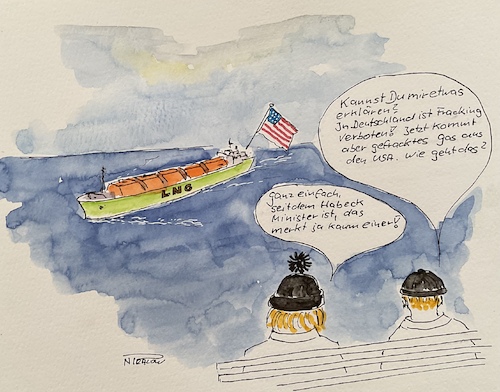 Kannst Du mir etwas
erklären?
In Deutschland ist Fracking
verboten! Jetzt kommt
aber gefracktes Gas aus
den USA. Wie geht das?
Ganz einfach,
seitdem Habeck
Minister ist, das
merkt ja kaum einer!
LNG